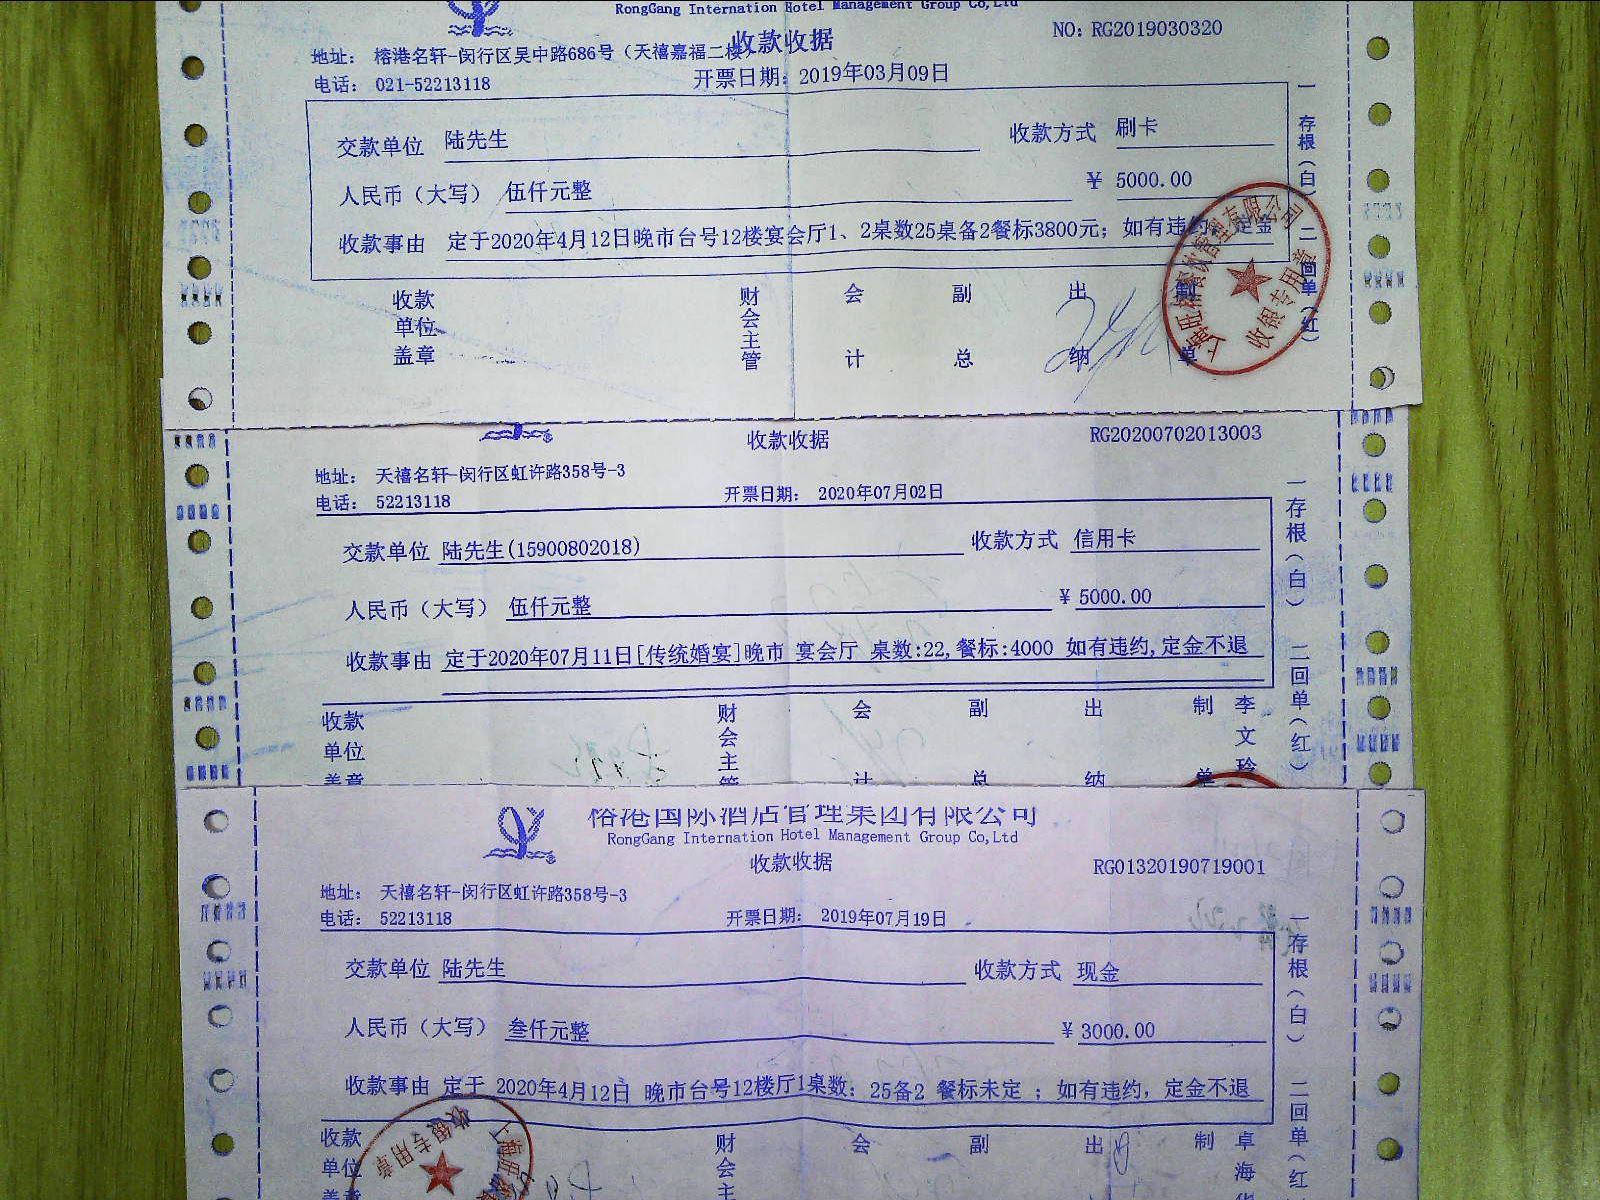 RongGang Internation Hotel Management Group Co,Ltd
收款收据
NO: RG2019030320
地址: 榕港名轩-闵行区吴中路686号（天禧嘉福二楼）
电话: 021-52213118
开票日期: 2019年03月09日
交款单位 陆先生
收款方式 刷卡
人民币（大写） 伍仟元整
¥ 5000.00
收款事由 定于2020年4月12日晚市台号12楼宴会厅1、2桌数25桌备2餐标3800元; 如有违约 定金
收款单位盖章
财会主管
会计
副总
出纳
制单
一存根（白） 二回单（红）
收银专用章
收款收据
RG20200702013003
地址: 天禧名轩-闵行区虹许路358号-3
电话: 52213118
开票日期: 2020年07月02日
交款单位 陆先生(15900802018)
收款方式 信用卡
人民币（大写） 伍仟元整
¥ 5000.00
收款事由 定于2020年07月11日[传统婚宴]晚市 宴会厅 桌数:22,餐标:4000 如有违约,定金不退
收款单位盖章
财会主管
会计
副总
出纳
制单
李文玲
一存根（白） 二回单（红）
榕港国际酒店管理集团有限公司
RongGang Internation Hotel Management Group Co,Ltd
收款收据
RG01320190719001
地址: 天禧名轩-闵行区虹许路358号-3
电话: 52213118
开票日期: 2019年07月19日
交款单位 陆先生
收款方式 现金
人民币（大写） 叁仟元整
¥ 3000.00
收款事由 定于 2020年4月12日 晚市台号12楼厅1桌数: 25备2 餐标未定 ; 如有违约, 定金不退
收款单位盖
财会主
会
副
出
制
卓海
一存根（白） 二回单（红
收银专用章